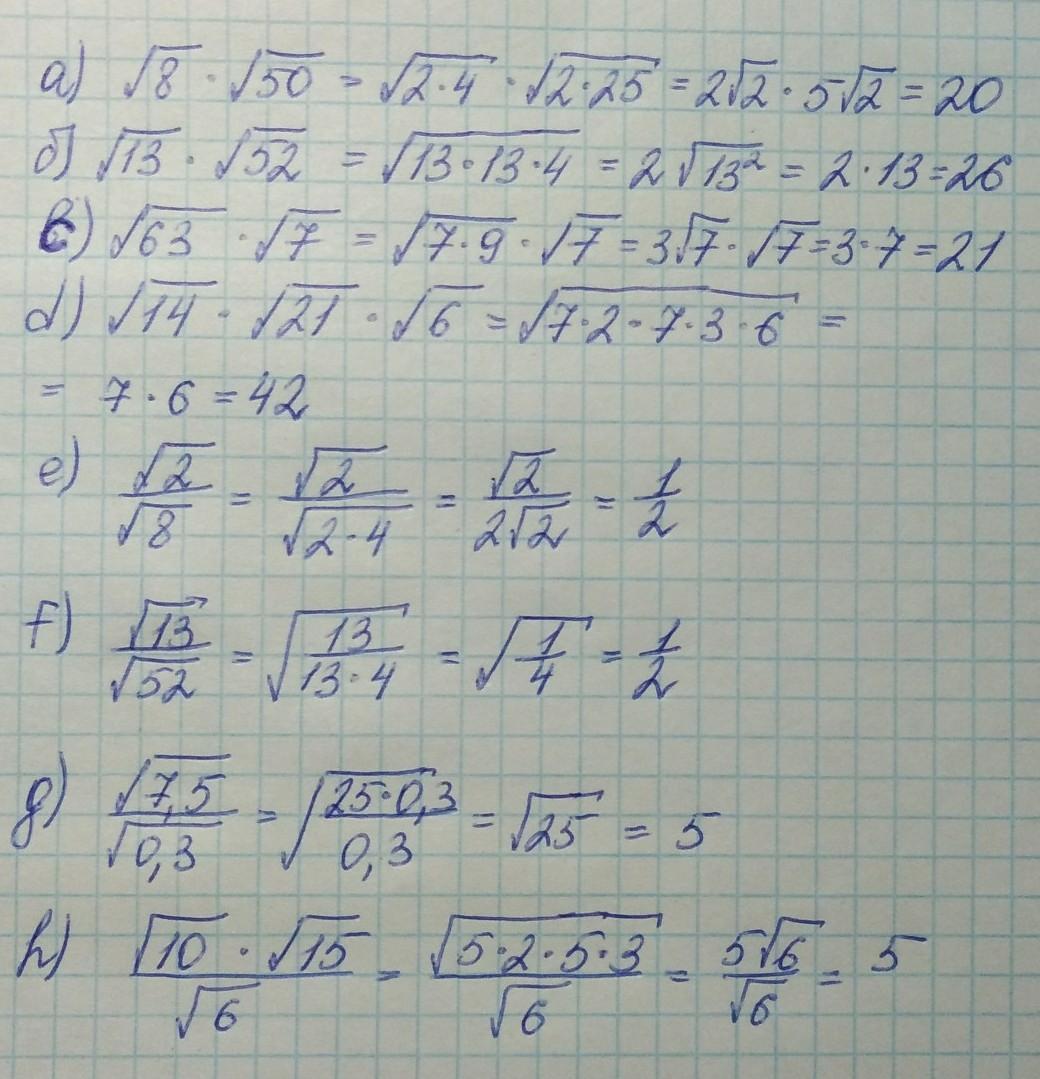 а) √8 · √50 = √2·4 · √2·25 = 2√2 · 5√2 = 20
б) √13 · √52 = √13·13·4 = 2√13² = 2·13=26
c) √63 · √7 = √7·9 · √7 = 3√7·√7=3·7=21
d) √14 · √21 · √6 = √7·2·7·3·6 =
= 7·6 =42
e) √2/√8 = √2/√2·4 = √2/2√2 = 1/2
f) √13/√52 = √13/13·4 = √1/4 = 1/2
g) √7,5/√0,3 = √25·0,3/0,3 = √25 = 5
h) √10 · √15/√6 = √5·2·5·3/√6 = 5√6/√6 = 5